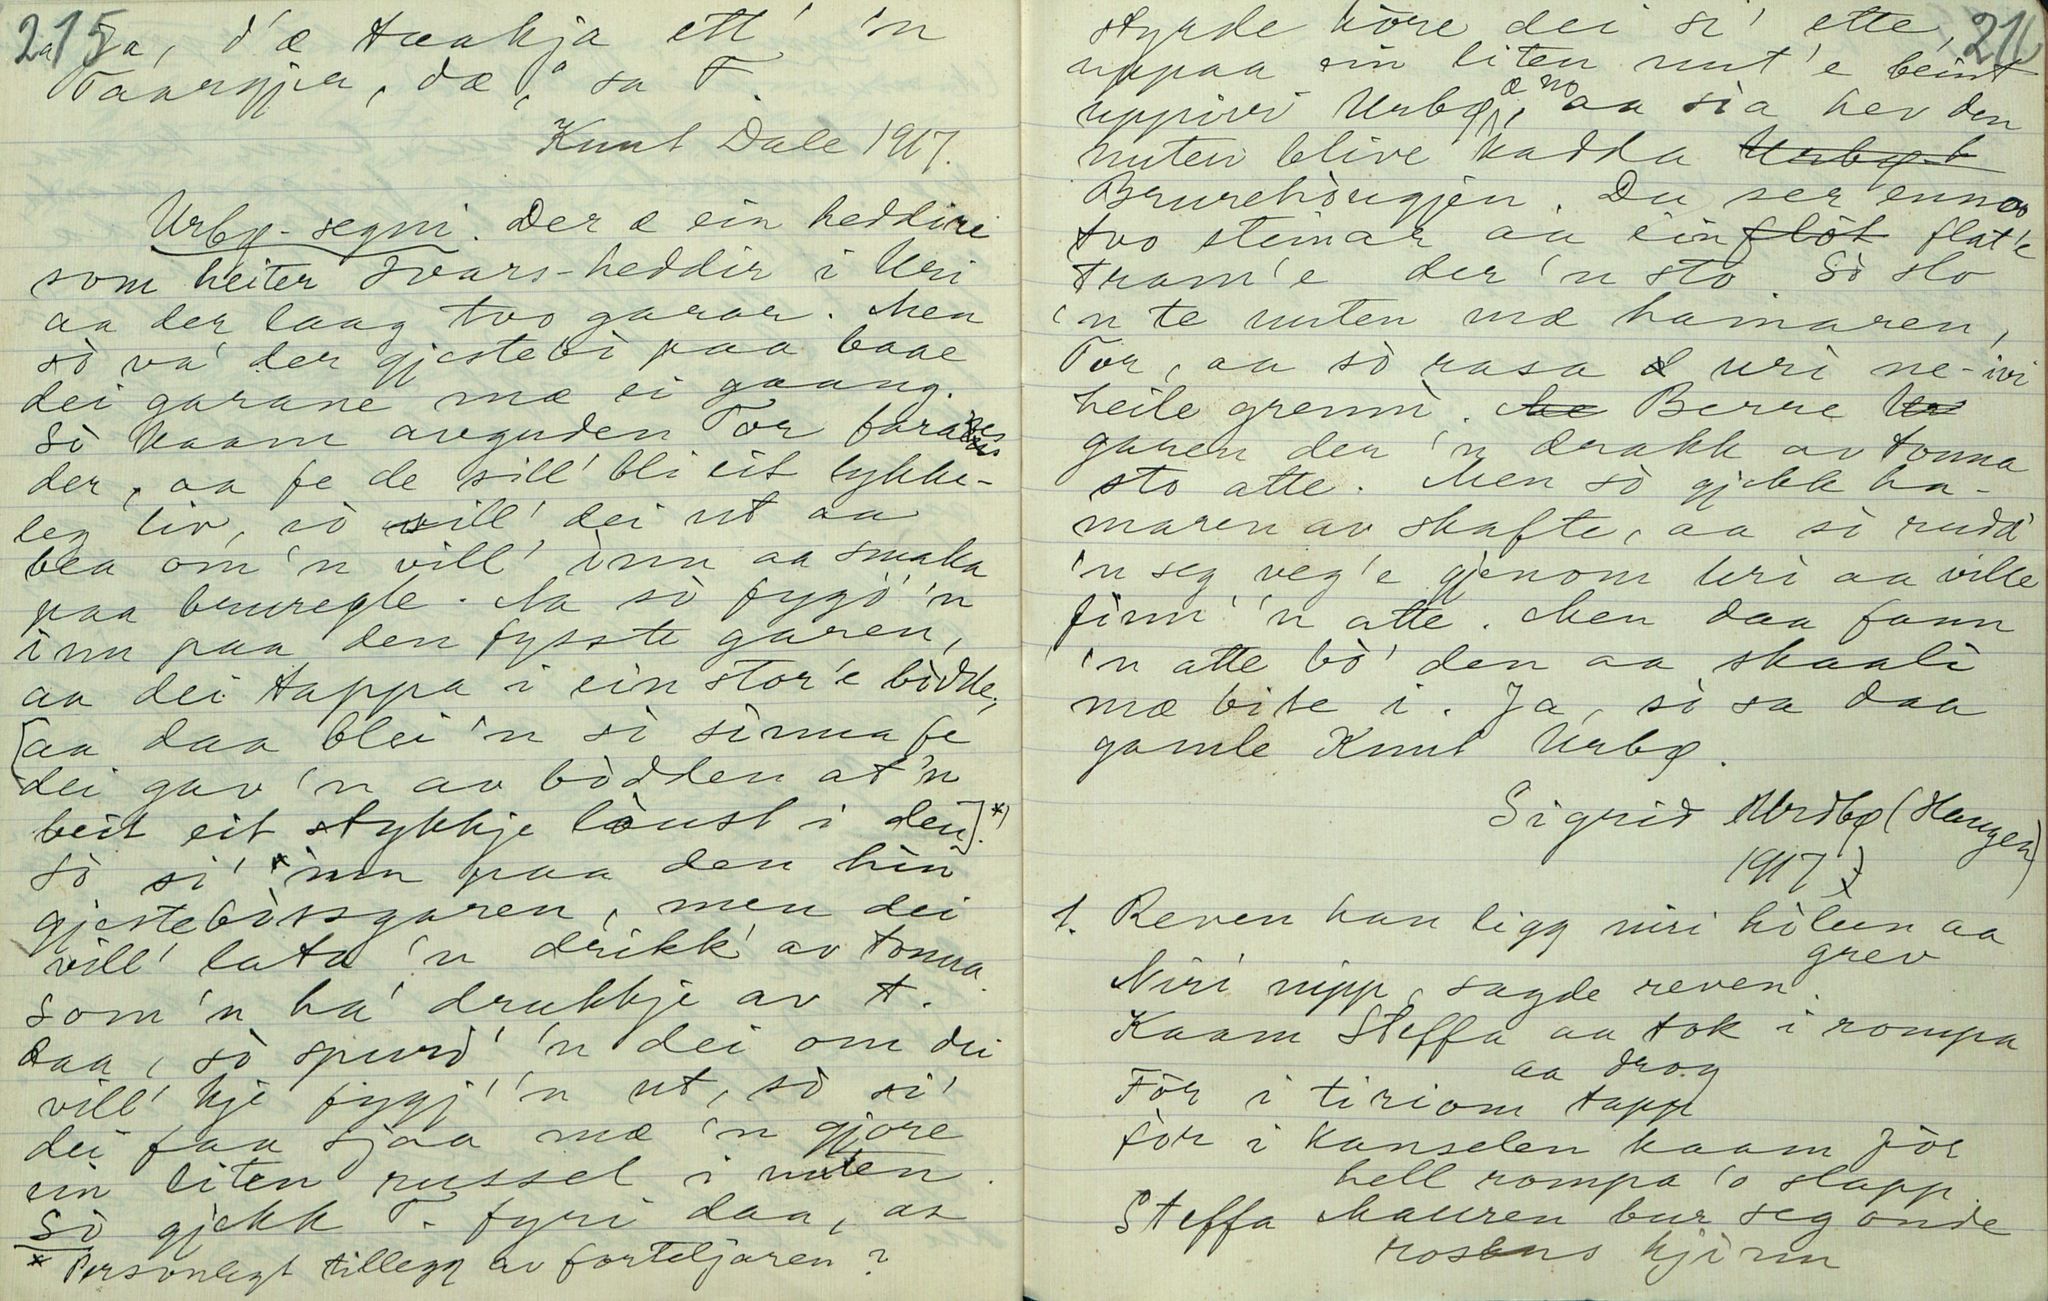 215
Ja, d'æ taakja ett' 'n
Taargjer, dæ," sa T.
Knut Dale 1917.
Urbø-segni. Der æ ein heddire
som heiter Ivars-heddir i Uri
aa der laag two garar. Men
sò va' der gjestebò paa baae
dei garane mæ ei gaang.
Sò kaam avguden Tor farandes
der, aa fe de sill' bli eit lykke-
leg liv, sò vill' dei ut aa
bea om 'n vill' inn aa smaka
paa bruregle. Aa sò fygd' 'n
inn paa den fysste garen,
aa dei tappa i ein stor'e bòdde,
[aa daa blei 'n sò sinna fe
dei gav 'n av bòdden at 'n
beit eit stykkje laust i den].*)
Sò si' inn paa den hin
gjestebòsgaren, men dei
vill' lata 'n drikk' av tonna.
Som 'n ha' drukkje av t.
daa, sò spurd' 'n dei om dei
vill' kje fygj' 'n ut, sò si'
dei faa sjaa mæ 'n gjore
ein liten russel i nuten.
Sò gjekk T. fyri daa, aa
* Personlegt tillegg av forteljaren?
216
styrde kòre dei si' ette,
uppaa ein liten nut'e beint
uppivi Urbø, æ no aa sia hev den
nuten blive kadda Urbø-b
Brurehòvgjen. Du ser ennoo
two steinar aa ein flòt flat'e
tram'e der 'n sto. Sò slo
'n te nuten mæ hamaren,
Tor, aa sò rasa uri ne-ivi
heile grenni. Berre
garen der 'n drakk av tonna
sto atte. Men sò gjekk ha-
maren av skafte, aa sò rudd'
'n seg veg'e gjenom Uri aa ville
finn' 'n atte. Men daa fann
'n atte bò' den aa skaali
mæ bite i. Ja, sò sa daa
gamle Knut Urbø.
Sigrid Urdbø (Haugen)
1917
1. Reven han ligg niri hòlun aa
grev
Niri nipp, sagde reven.
Kaam Steffa aa tok i rompa
aa drog
Fòr i tiriom tapp
fòr i kanselen kaam fòr
hell rompa 'o slapp.
Steffa Mauren bur seg onde
rosens kjinn